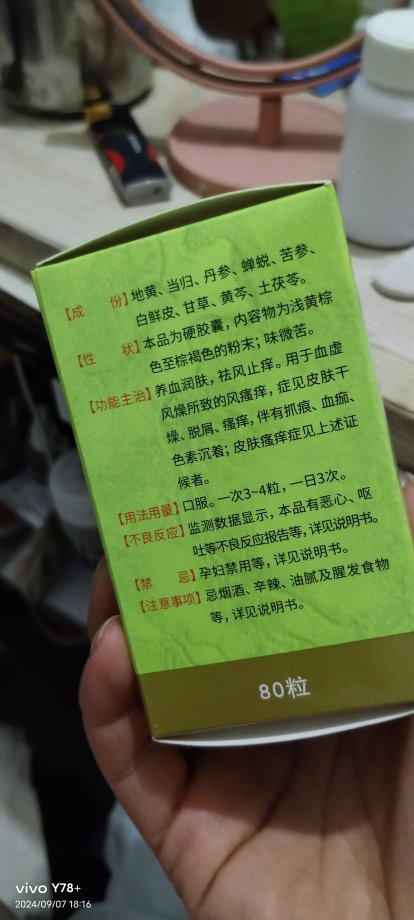 【成　　份】地黄、当归、丹参、蝉蜕、苦参、
白鲜皮、甘草、黄芩、土茯苓。
【性　　状】本品为硬胶囊，内容物为浅黄棕
色至棕褐色的粉末；味微苦。
【功能主治】养血润肤，祛风止痒。用于血虚
风燥所致的风瘙痒，症见皮肤干
燥、脱屑、瘙痒，伴有抓痕、血痂、
色素沉着；皮肤瘙痒症见上述证
候者。
【用法用量】口服。一次3~4粒，一日3次。
【不良反应】监测数据显示，本品有恶心、呕
吐等不良反应报告等，详见说明书。
【禁　　忌】孕妇禁用等，详见说明书。
【注意事项】忌烟酒、辛辣、油腻及腥发食物
等，详见说明书。
80粒
vivo Y78+
2024/09/07 18:16